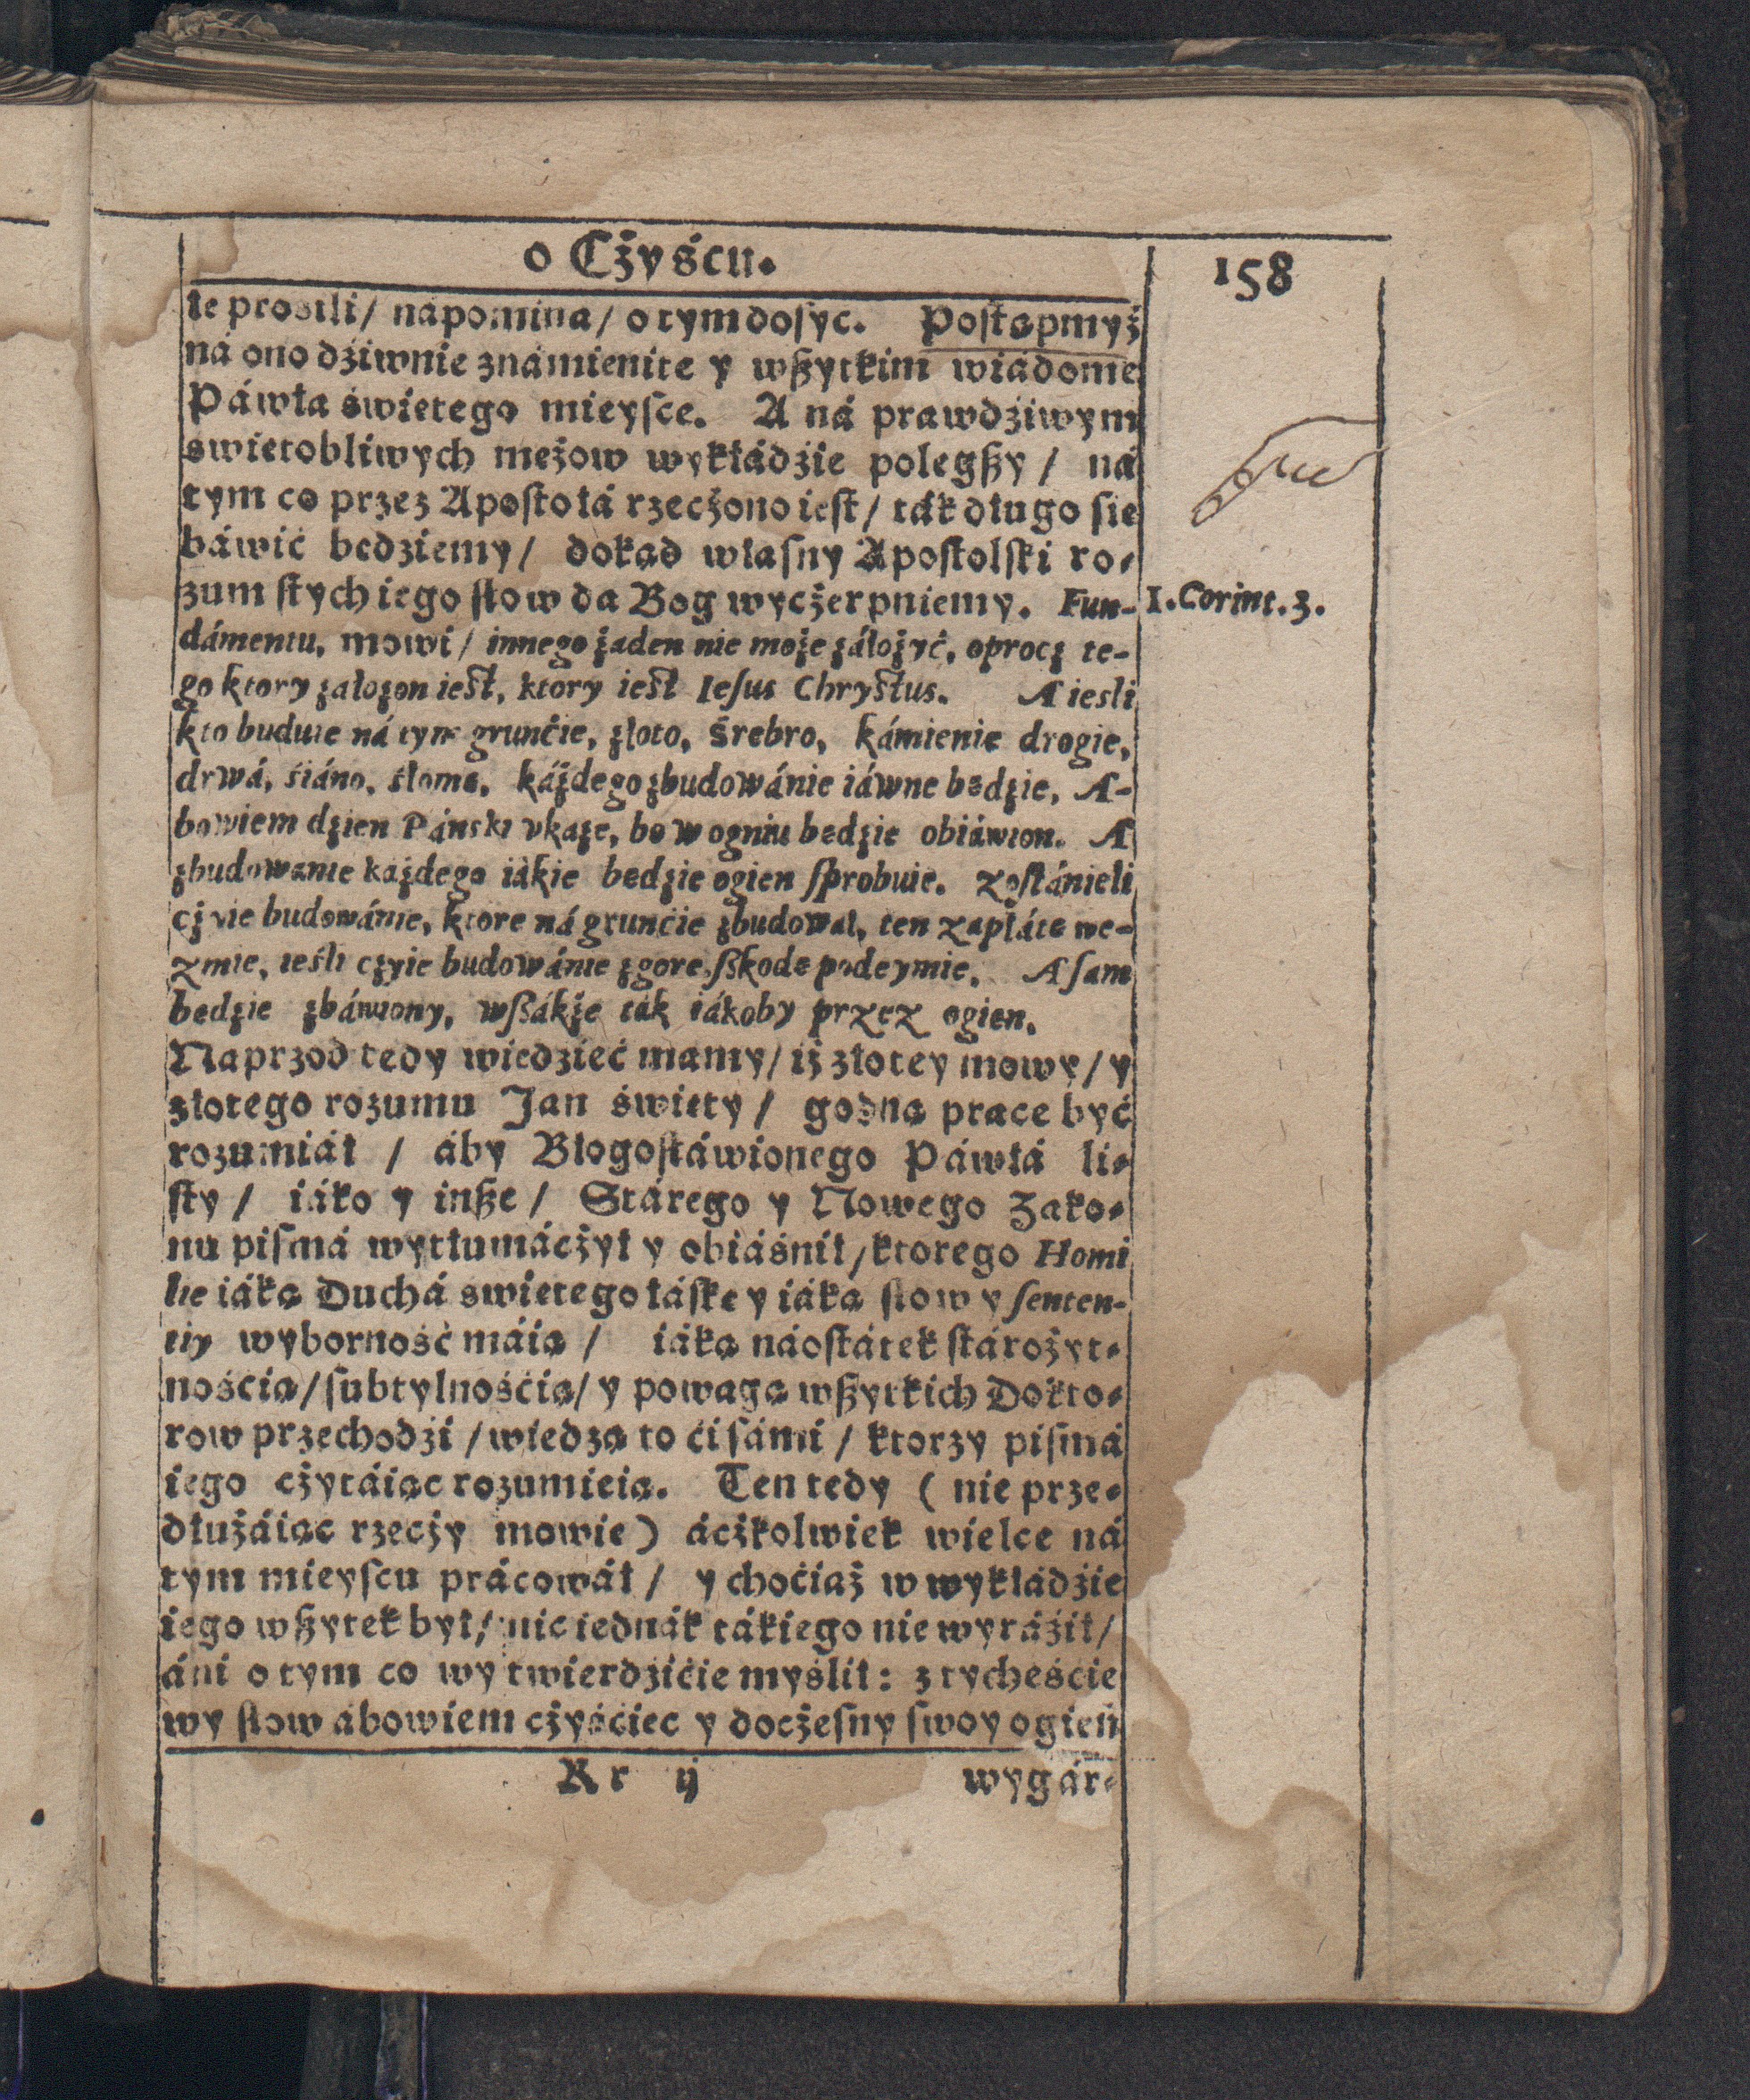 o Cżyścu.
158
le prosili / nápomina / o tym dosyc. Postąpmyż
ná ono dźiwnie známienite y wszytkim wiádome
Páwłá świętego mieysce. A ná prawdźiwym
swiętobliwych mężow wykłádźie polegszy / ná
tym co przez Apostołá rzecżono iest / ták długo się
báwić będziemy / dokąd własny Apostolski ro-
zum s tych iego słow da Bog wycżerpniemy. Fun-
1. Corint. 3.
dámentu, mowi / innego żaden nie może záłożyć, oprocz te-
go ktory założon iest, ktory iest Iesus Chrystus. A iesli
kto buduie ná tym grunćie, złoto, śrebro, kámienie drogie,
drwá, śiáno, słomę, káżdego zbudowánie iáwne będzie, A-
bowiem dzien Pánski vkaże, bo w ogniu będzie obiáwion. A
zbudowanie każdego iákie będzie ogien sprobuie. Zostánieli
czyie budowánie, ktore ná grunćie zbudował, ten zapłátę we-
zmie, ieśli czyie budowánie zgore, szkodę podeymie. A sam
będzie zbáwiony, wszákże ták iákoby przez ogien.
Naprzod tedy wiedzieć mamy / iż złotey mowy / y
złotego rozumu Jan święty / godną prace być
rozumiáł / áby Błogosłáwionego Páwłá li-
sty / iáko y insze / Stárego y Nowego Zako-
nu pismá wytłumácżył y obiáśnił / ktorego Homi
lie iáką Duchá swiętego łáskę y iáką słow y senten-
tiy wyborność máią / iáką náostátek stárożyt-
nośćią / subtylnośćią / y powagą wszytkich Dokto-
row przechodźi / wiedzą to ći sámi / ktorzy pismá
iego cżytáiąc rozumieią. Ten tedy ( nie prze-
dłużáiąc rzecży mowię ) ácżkolwiek wielce ná
tym mieyscu prácowáł / y choćiaż w wykładźie
iego wszytek był / nic iednák tákiego nie wyráźił /
áni o tym co wy twierdźićie myślił: z tycheście
wy słow ábowiem cżyśćiec y docżesny swoy ogień
Rr ij
wygár-